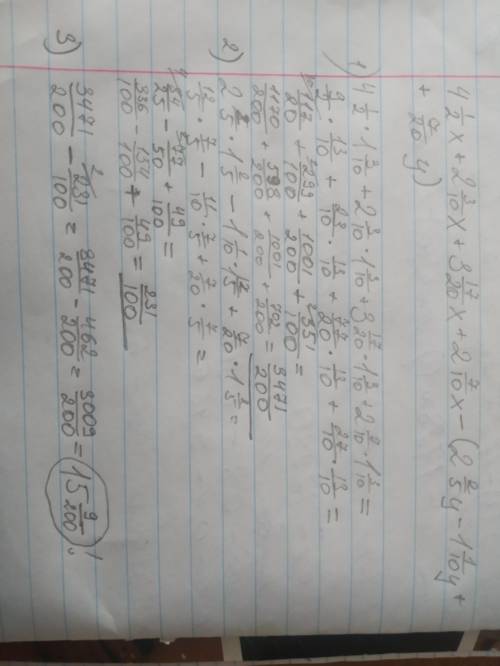 4 1/2 x + 2 3/10 x + 3 17/20 x + 2 7/10 x - (2 2/5 y - 1 1/10 y +
+ 7/20 y)
1) 4 1/2 · 1 3/10 + 2 3/10 · 1 3/10 + 3 17/20 · 1 3/10 + 2 7/10 · 1 3/10 =
9/2 · 13/10 + 23/10 · 13/10 + 77/20 · 13/10 + 27/10 · 13/10 =
117/20 + 299/100 + 1001/200 + 351/100 =
1170/200 + 598/200 + 1001/200 + 702/200 = 3471/200
2) 2 2/5 · 1 2/5 - 1 1/10 · 1 2/5 + 7/20 · 1 2/5 =
12/5 · 7/5 - 11/10 · 7/5 + 7/20 · 7/5 =
84/25 - 77/50 + 49/100 =
336/100 - 154/100 + 49/100 = 231/100
3) 3471/200 - 231/100 = 3471/200 - 462/200 = 3009/200 = 15 9/200